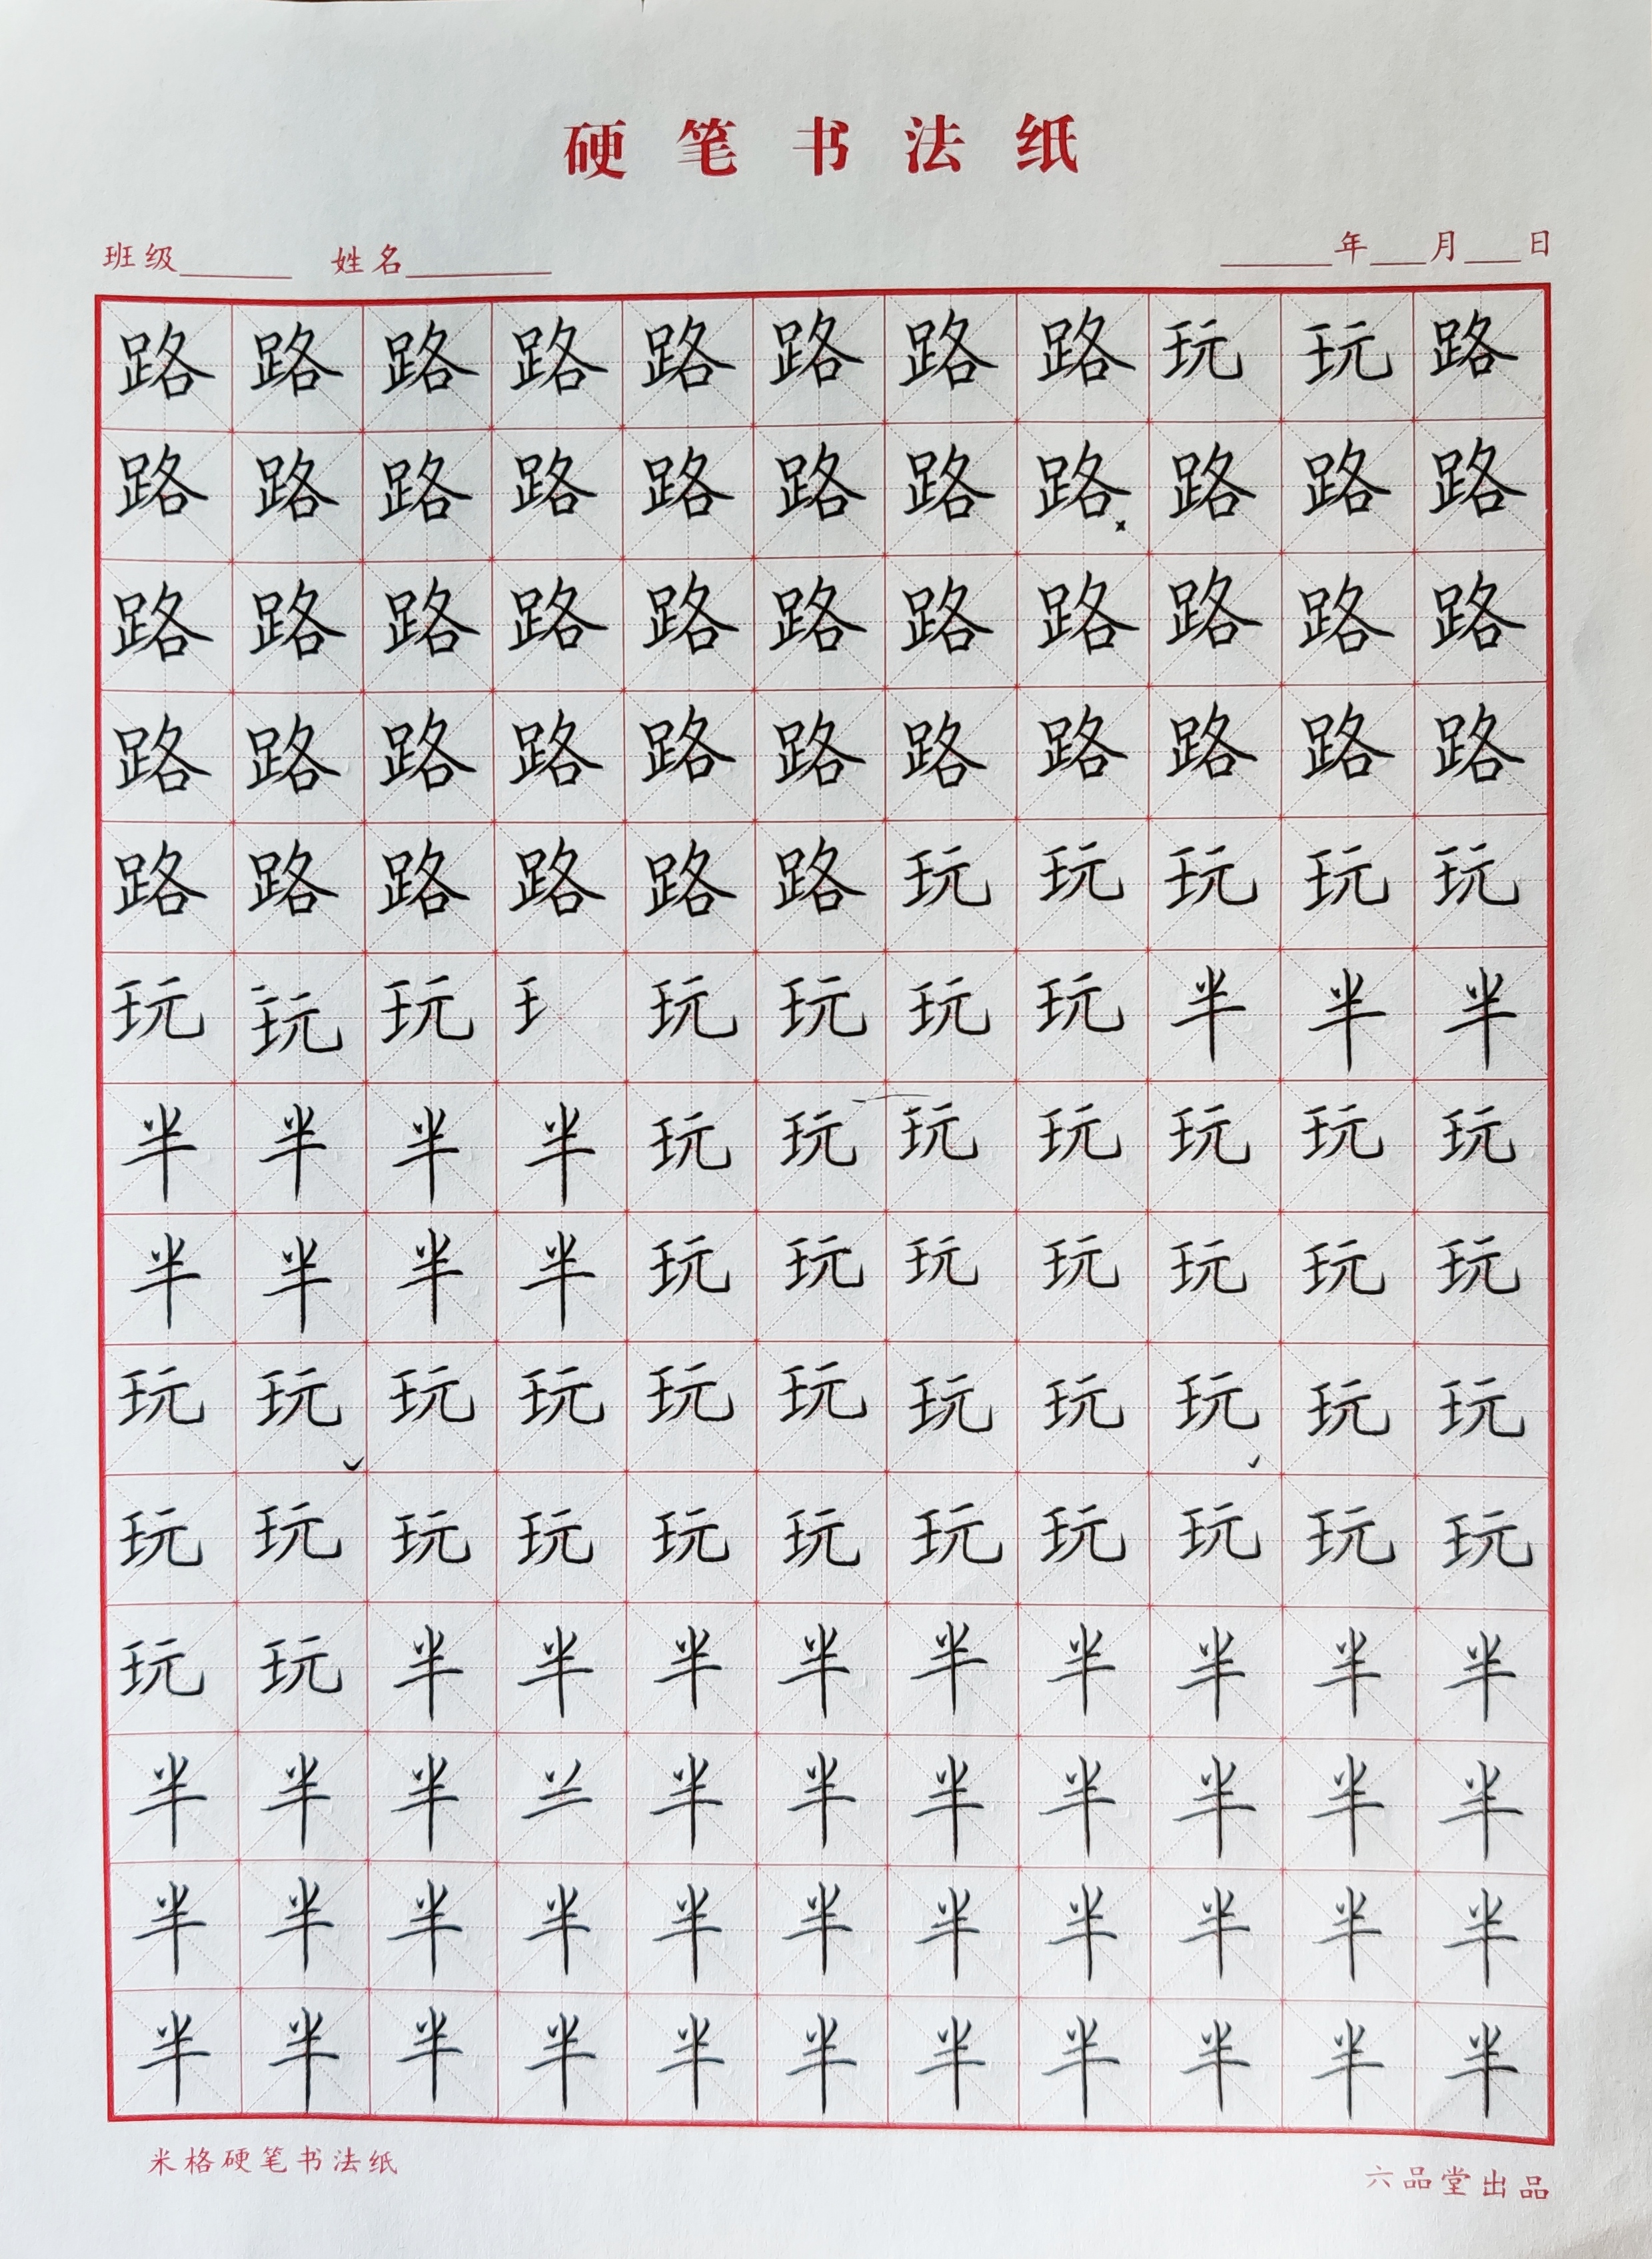 硬笔书法纸
班级______ 姓名________ ______年___月___日
路路路路路路路路玩玩路
路路路路路路路路路路路
路路路路路路路路路路路
路路路路路路路路路路路
路路路路路路玩玩玩玩玩
玩玩玩王玩玩玩玩半半半
半半半半玩玩玩玩玩玩玩
半半半半玩玩玩玩玩玩玩
玩玩玩玩玩玩玩玩玩玩玩
玩玩玩玩玩玩玩玩玩玩玩
玩玩半半半半半半半半半
半半半兰半半半半半半半
半半半半半半半半半半半
半半半半半半半半半半半
米格硬笔书法纸 六品堂出品